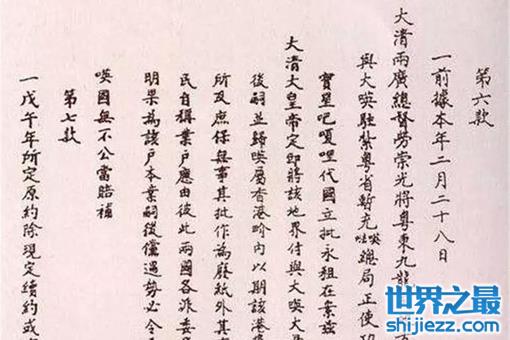 第六款
一前據本年二月二十八日
大清兩廣總督勞崇光將粵東九龍
與大𠸄駐紮粵省暫充𠸄總局正使功
寶星吧嗄哩代國立批永租在案茲
大清大皇帝定即將該地界付與大𠸄大
後嗣並歸𠸄屬香港界內以期該港
所及庶保無事其批作為廢紙外其
民自稱業戶應由彼此兩國各派委
明果為該戶本業嗣後倘遇勢必令
𠸄國無不公當賠補
第七款
一戊午年所定原約除現定續約或
世界之最
shijiezz.com